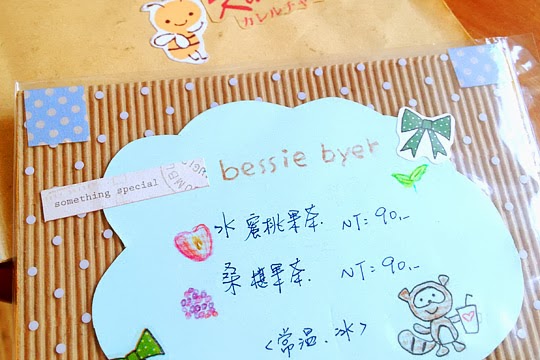 カレルチャ
bessie byer
something special
水蜜桃果茶. NT:90.-
桑椹果茶. NT:90.-
<常溫.冰>